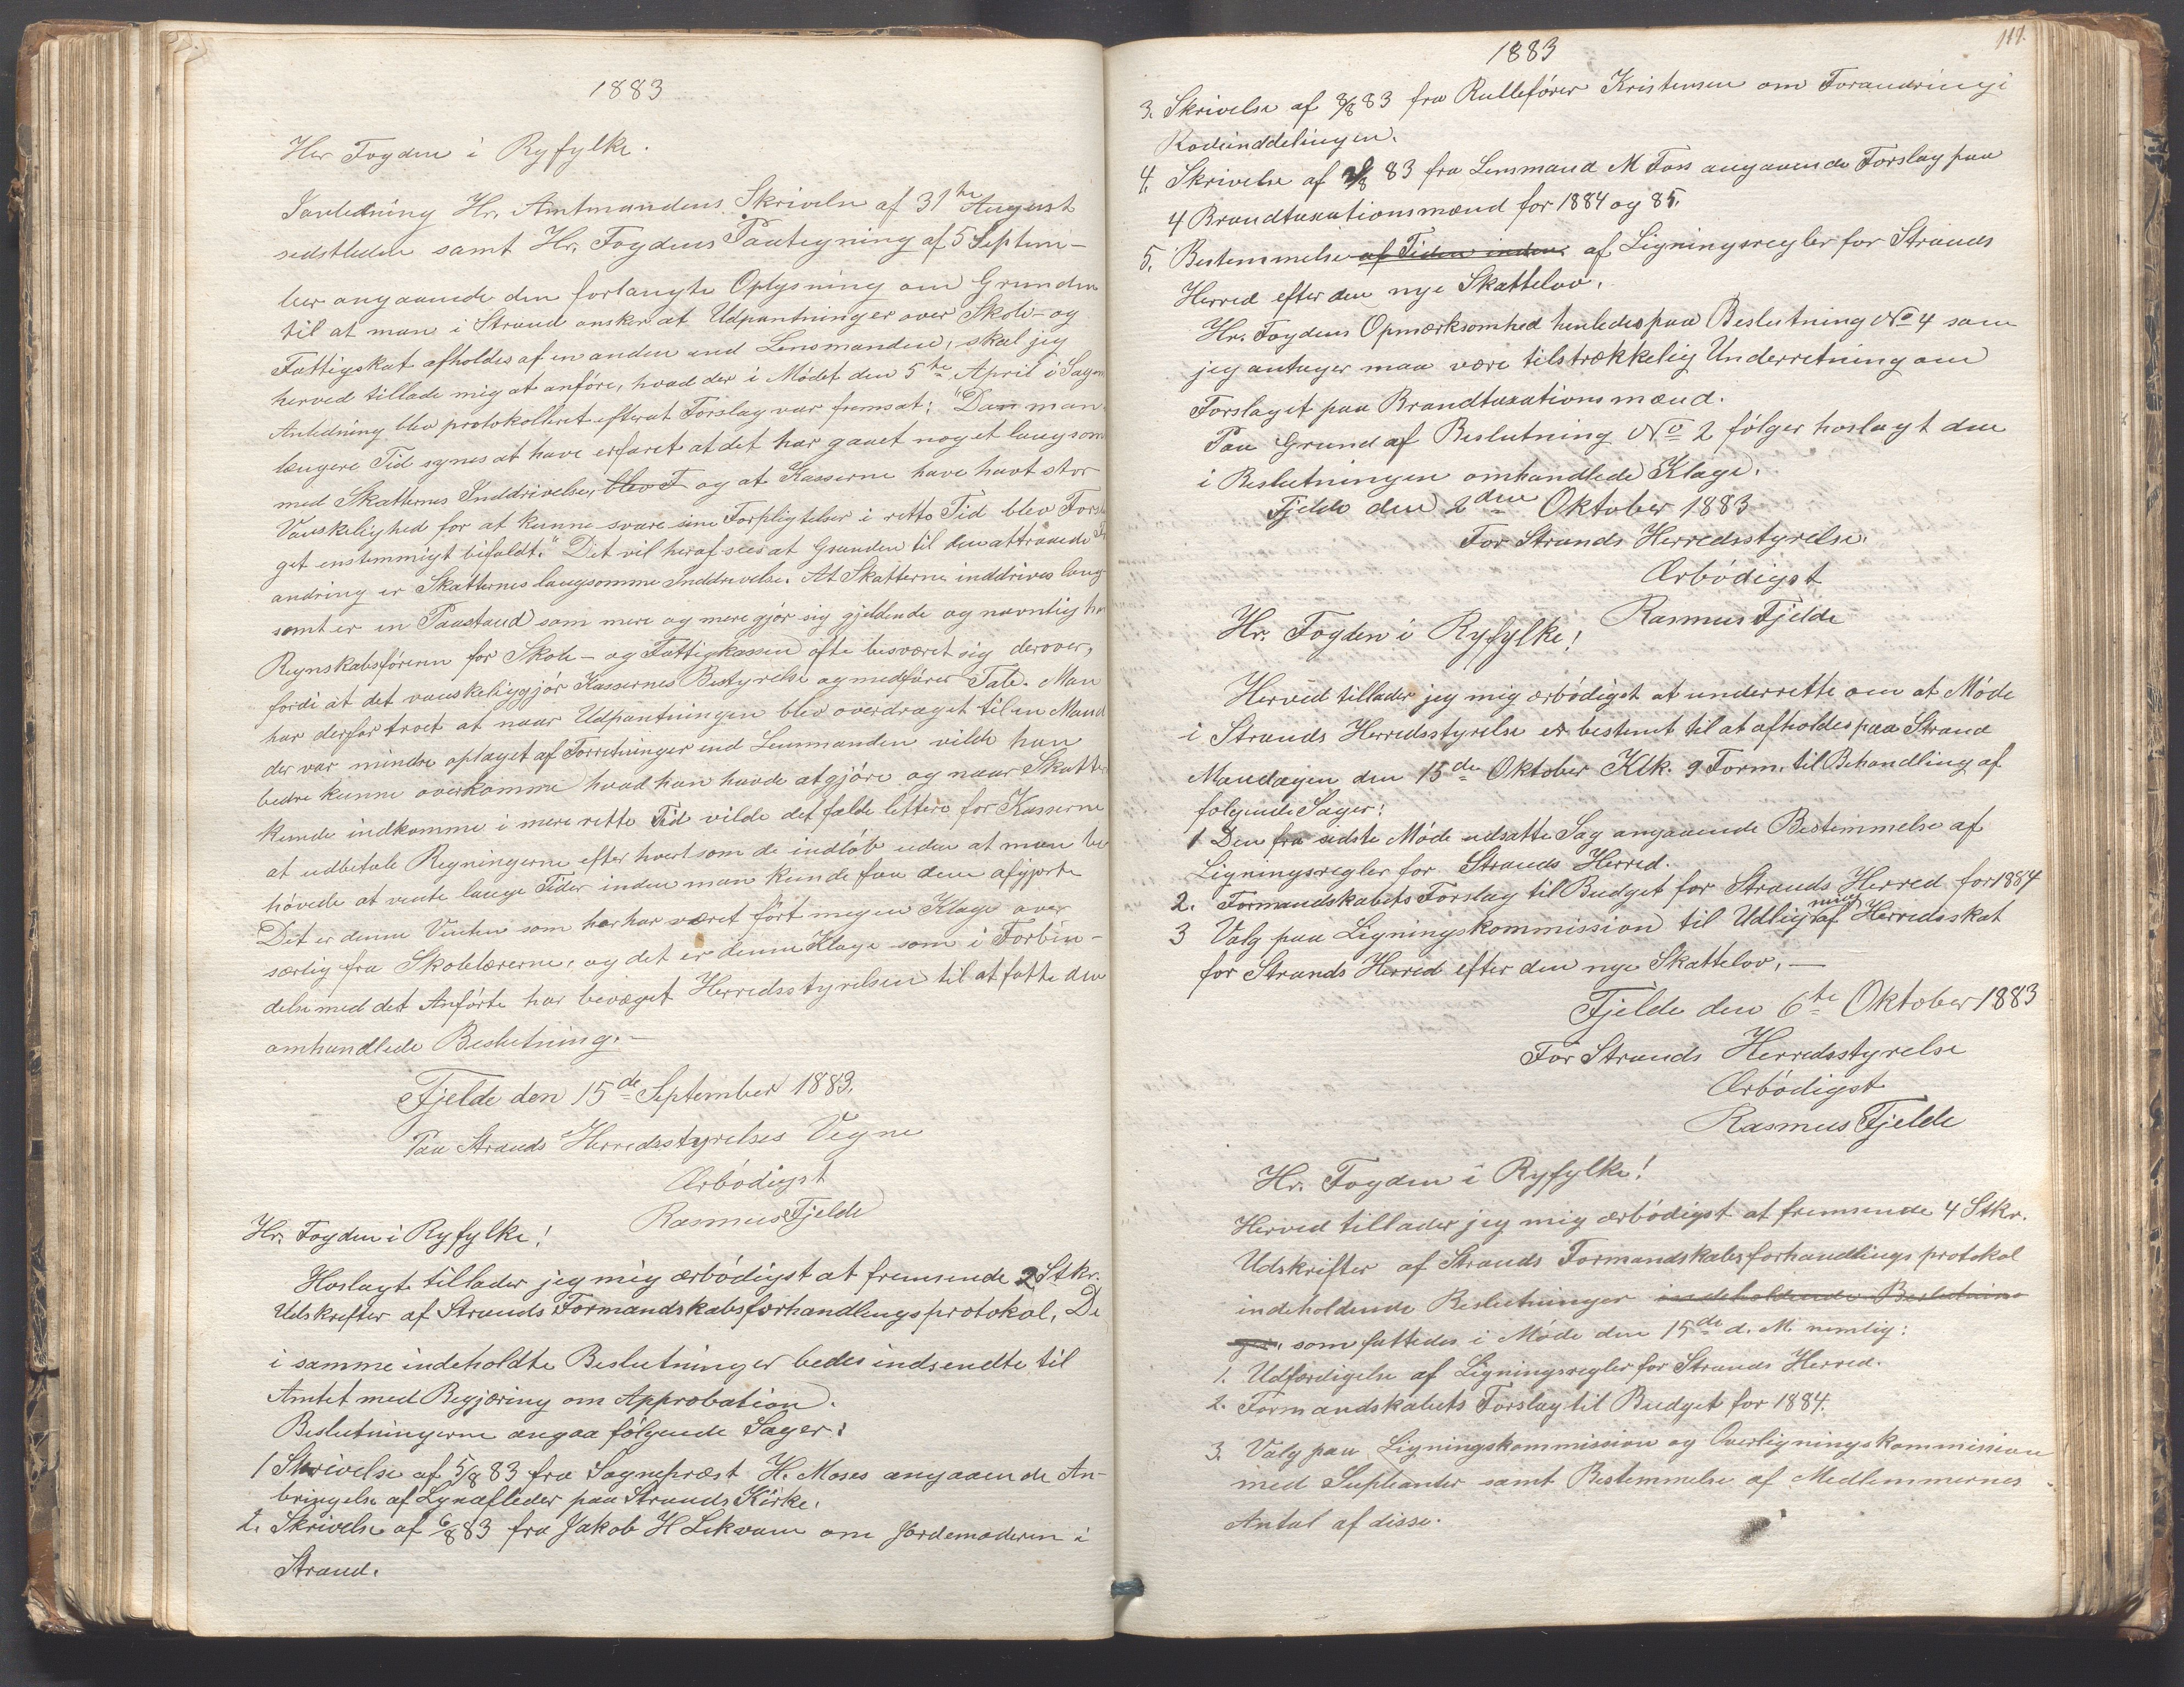 1883
Hr Fogden i Ryfylke.
I anledning Hr. Amtmandens Skrivelse af 31te August
sidstleden samt Hr. Fogdens Paategning af 5 Septem-
ber angaaende den forlangte Oplysning om Grunden
til at man i Strand ønsker at Udpantninger over Skole- og
Fattigskat afholdes af en anden end Lensmanden, skal jeg
herved tillade mig at anføre, hvad der i Mødet den 5te April i Sagens
Anledning blev protokolleret efterat Forslag var fremsat: "Da man
længere Tid synes at have erfaret at det har gaaet noget langsom
med Skatternes Inddrivelse, blev F og at Kasserne have havt stor
Vanskelighed for at kunne svare sine Forpligtelser i rette Tid blev Forsla
get enstemmigt bifaldt." Det vil heraf sees at Grunden til den attraaede F
andring er Skatternes langsomme Inddrivelse. At Skatterne inddrives lang
somt er en Paastand som mere og mere gjør sig gjeldende og navnlig ha
Regnskabsføreren for Skole- og Fattigkassen ofte besværet sig derover,
fordi at det vanskeliggjør Kassernes Bestyrelse og medfører Tale. Man
har derfor troet at naar Udpantningen blev overdraget til en Mand
der var mindre optaget af Forretninger end Lensmanden vilde han
bedre kunne overkomme hvad han havde at gjøre og naar Skatte
kunde indkomme i mere rette Tid vilde det falde lettere for Kasserne
at udbetale Regningerne efter hvert som de indløb uden at man be
høvede at vente lange Tider inden man kunde faa dem afgjorte
Det er denne Venten som her har været ført megen Klage over
særlig fra Skolelærerne, og det er denne Klage som i Forbin-
delse med det Anførte har bevæget Herredsstyrelsen til at fatte den
omhandlede Beslutning.-
Fjelde den 15de September 1883.
Paa Strands Herredsstyrelses Vegne
Ærbødigst
Rasmus Fjelde
Hr. Fogden i Ryfylke!
Hoslagt tillader jeg mig ærbødigst at fremsende 2 Stkr.
Udskrifter af Strands Formandskabsforhandlingsprotokol, De
i samme indeholdte Beslutninger bedes indsendte til
Amtet med Begjæring om Approbation.
Beslutningerne angaa følgende Sager:
1 Skrivelse af 5/8 83 fra Sognepræst H. Moses angaaende An-
bringelse af Lynafleder paa Strands Kirke.
2. Skrivelse af 6/8 83 fra Jakob H Lekvam om Jordemoderen i
Strand.
1883
111.
3. Skrivelse af 8/8 83 fra Rullefører Kristensen om Forandring i
Rodeinddelingen.
4. Skrivelse af 2/8 83 fra Lensmand M Foss angaaende Forslag paa
4 Brandtaxationsmænd for 1884 og 85.
5. Bestemmelse af Tiden inden af Ligningsregler for Strands
Herred efter den nye Skattelov.
Hr. Fogdens Opmærksomhed henledes paa Beslutning No 4 som
jeg antager maa være tilstrækkelig Underretning om
Forslaget paa Brandtaxationsmænd.
Paa Grund af Beslutning No 2 følger hoslagt den
i Beslutningen omhandlede Klage.
Fjelde den 2den Oktober 1883
For Strands Herredsstyrelse.
Ærbødigst
Rasmus Fjelde
Hr. Fogden i Ryfylke!
Herved tillader jeg mig ærbødigst at underrette om at Møde
i Strands Herredsstyrelse er bestemt til at afholdes paa Strand
Mandagen den 15de Oktober Klk. 9 Form. til Behandling af
følgende Sager:
1 Den fra sidste Møde udsatte Sag angaaende Bestemmelse af
Ligningsregler for Strands Herred.
2. Formandskabets Forslag til Budget for Strands Herred for 1884
3 Valg paa Ligningskommission til Udligning af Herredsskat
for Strands Herred efter den nye Skattelov.-
Fjelde den 6te Oktober 1883
For Strands Herredsstyrelse
Ærbødigst
Rasmus Fjelde
Hr. Fogden i Ryfylke!
Herved tillader jeg mig ærbødigst at fremsende 4 Stkr.
Udskrifter af Strands Formandskabsforhandlingsprotokol
indeholdende Beslutninger indeholdende Beslutnin-
ger, som fattedes i Møde den 15de d. M. nemlig:
1. Udfærdigelse af Ligningsregler for Strands Herred.
2. Formandskabets Forslag til Budget for 1884.
3. Valg paa Ligningskommission og Overligningskommission
med Supleanter samt Bestemmelse af Medlemmernes
Antal af disse.